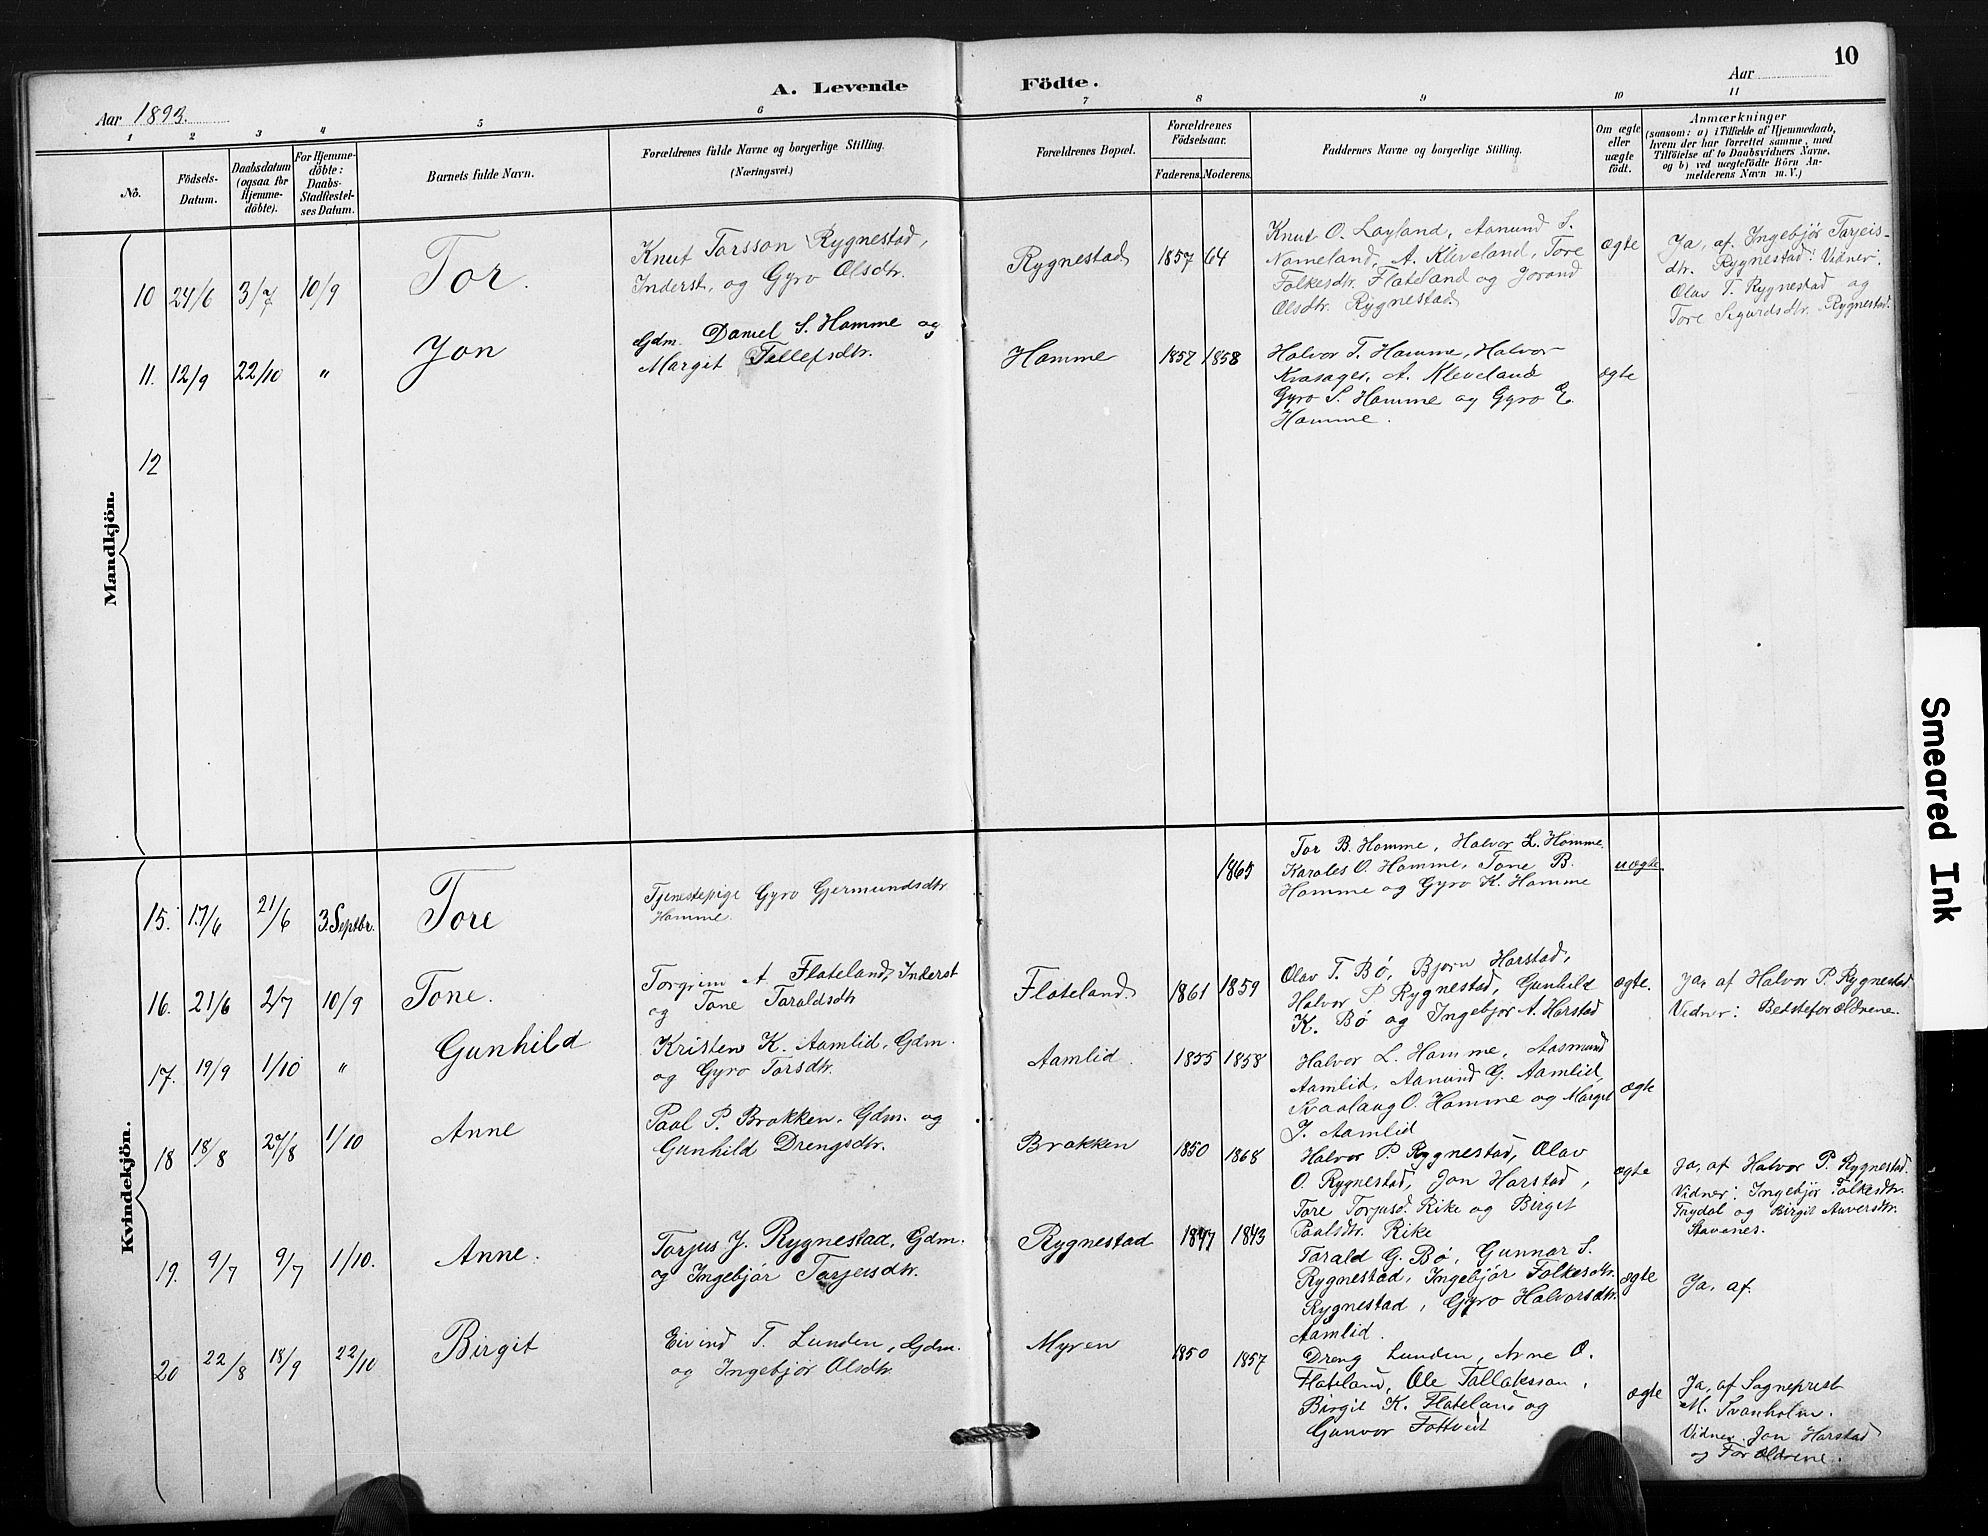 10
A. Levende Födte.
Aar 1893.
Aar
1 2 3 4 5 6 7 8 9 10 11
No.
Födsels-Datum.
Daabsdatum (ogsaa for Hjemme-döbte).
For Hjemme-döbte: Daabs-Stadfæstel-ses Datum.
Barnets fulde Navn.
Forældrenes fulde Navne og borgerlige Stilling.
(Næringsvei.)
Forældrenes Bopæl.
Forældrenes Födselsaar.
Faderens. Moderens.
Faddernes Navne og borgerlige Stilling.
Om ægte eller uægte födt.
Anmærkninger
(saasom: a) i Tilfælde af Hjemmedaab,
hvem der har forrettet samme, med
Tilföielse af to Daabsvidners Navne.
og b) ved uægtefödte Börn An-
melderens Navn m. V.)
Mandkjön.
10 24/6 3/7 10/9 Tor.
Knut Torsson Rygnestad,
Inderst, og Gyro Olsdtr.
Rygnestad 1857 64
Knut O. Løyland, Aanund S.
Nomeland, A. Kleveland, Tore
Folkesdtr. Flateland og Jorand
Olsdtr. Rygnestad
ægte
Ja, af Ingebjør Tarjeis-
dtr. Rygnestad: Vidner.
Olav T. Rygnestad og
Tore Sigurdsdtr. Rygnestad.
11. 12/9 22/10 " Jon
Gdm. Daniel S. Homme og
Margit Tellefsdtr.
Homme 1857 1858
Halvor T. Homme, Halvor
Kvasager, A. Kleveland
Gyro S. Homme og Gyro E
Homme.
ægte
12
Kvindekjön.
15. 17/6 21/6 3. Septbr. Tore
Tjenestepige Gyro Gjermundsdtr
Homme.
1865
Tor B. Homme, Halvor L. Homme.
Karoles O. Homme, Tone B.
Homme og Gyro K. Homme
uægte
16. 21/6 2/7 10/9 Tone.
Torgrim A Flateland, Inderst
og Tone Taraldsdtr
Flateland. 1861 1859
Olav T. Bø, Bjørn Harstad,
Halvor P Rygnestad, Gunhild
K. Bø og Ingebjør A. Harstad
ægte.
Ja, af Halvor P. Rygnestad
Vidner: Bedsteforældrene.
17. 19/9 1/10 " Gunhild
Kristen K. Aamlid, Gdm.
og Gyro Torsdtr.
Aamlid. 1855 1858
Halvor L. Homme, Aasmund
Aamlid, Aanund G. Aamlid,
Svaalaug O. Homme og Margit
J. Aamlid
ægte
18 18/8 27/8 1/10 Anne
Paal P. Brokken, Gdm. og
Gunhild Drengsdtr.
Brokken 1850 1868
Halvor P. Rygnestad, Olav
O. Rygnestad, Jon Harstad,
Tore Torjusd. Rike og Birgit
Paalsdtr. Rike
ægte
Ja, af Halvor P. Rygnestad.
Vidner: Ingebjør Folkesdtr.
og Birgit
Stavenes.
19. 9/7 9/7 1/10. Anne.
Torjus J. Rygnestad, Gdm.
og Ingebjør Tarjeisdtr.
Rygnestad 1847 1843
Tarald G. Bø, Gunnar S.
Rygnestad, Ingebjør Folkesdtr.
Rygnestad, Gyro Halvorsdtr.
Aamlid.
ægte
Ja, af.
20 22/8 18/9 22/10 Birgit
Eivind T. Lunden, Gdm.
og Ingebjør Olsdtr.
Myren 1850 1857
Dreng Lunden, Arne O.
Flateland, Ole Tallaksson,
Birgit K. Flateland og
Gunvor Tottveit
ægte
Ja, af Sogneprest
M. Svanholm.
Vidner. Jon Harstad
og Forældrene.
Smeared Ink